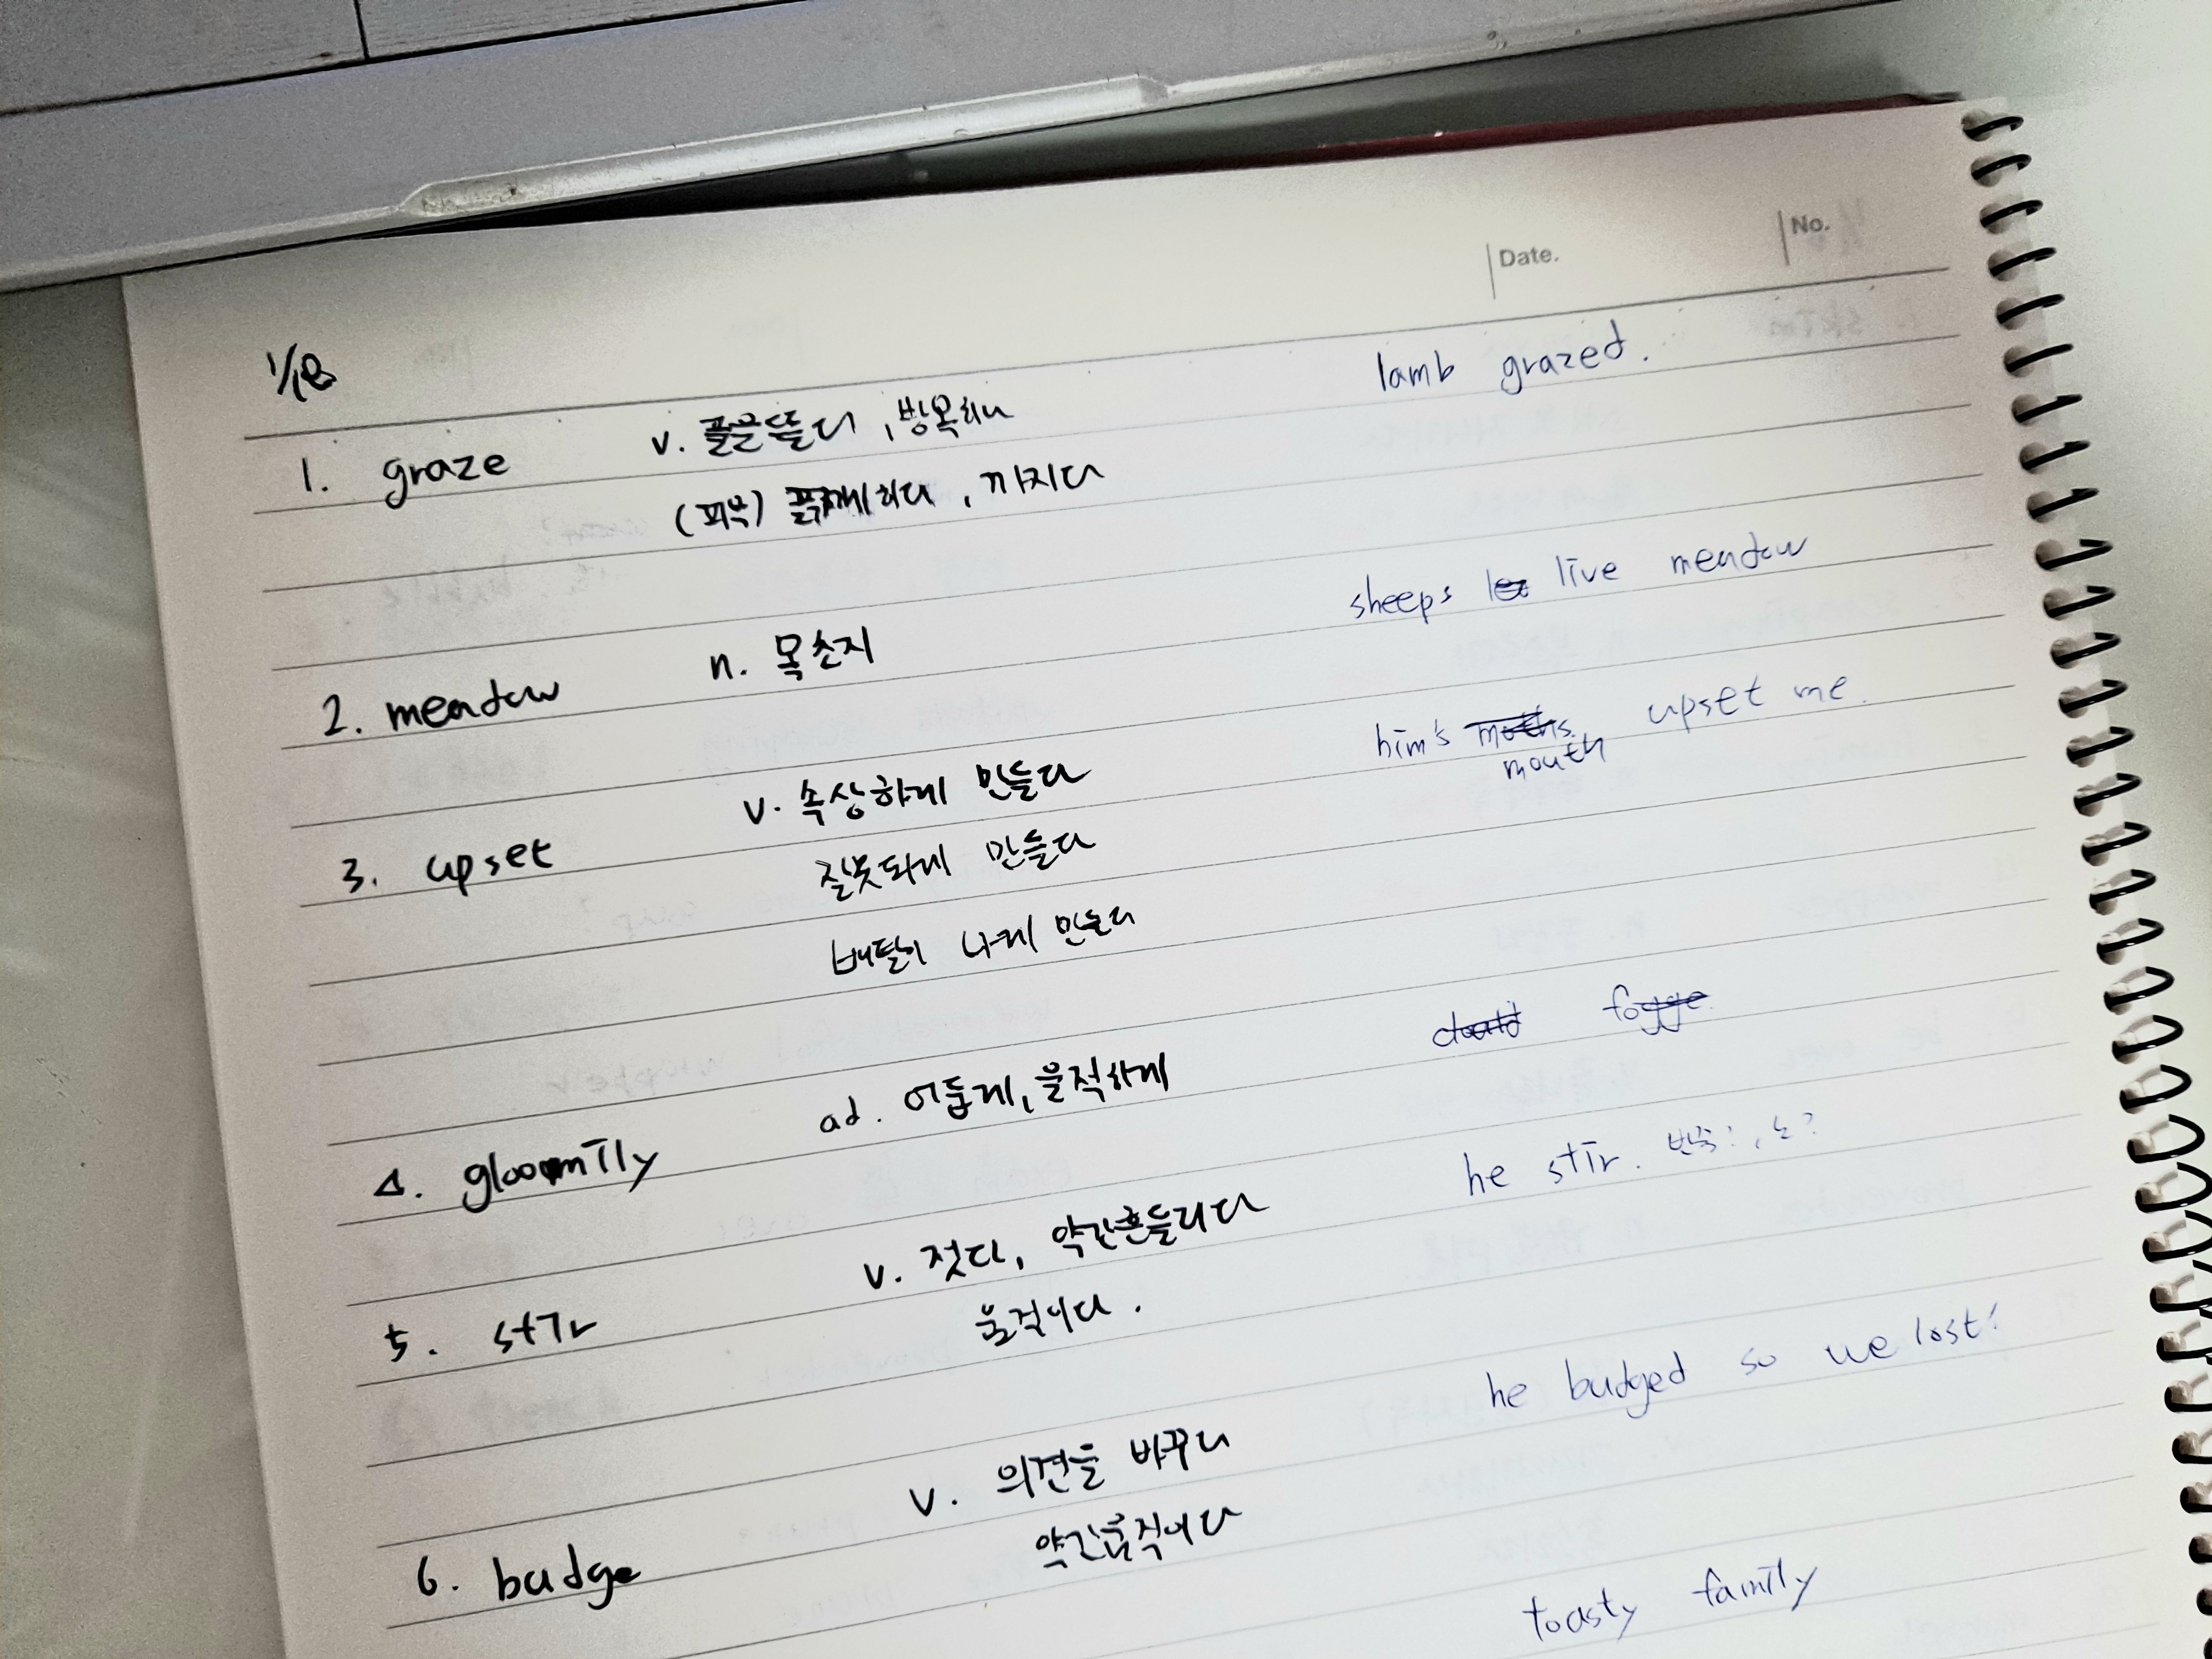 Date.
No.
1/18
1. graze v. 풀을뜯다, 방목하다 lamb grazed.
(피부) 긁게하다, 까지다
2. meadow n. 목초지 sheeps live meadow
3. upset v. 속상하게 만들다 him's mouth upset me.
잘못되게 만들다
배탈이 나게 만들다
4. gloomily ad. 어둡게, 울적하게
5. stir v. 젓다, 약간흔들리다 he stir.
움직이다.
6. budge v. 의견을 바꾸다 he budged so we lost!
약간움직이다
toasty family